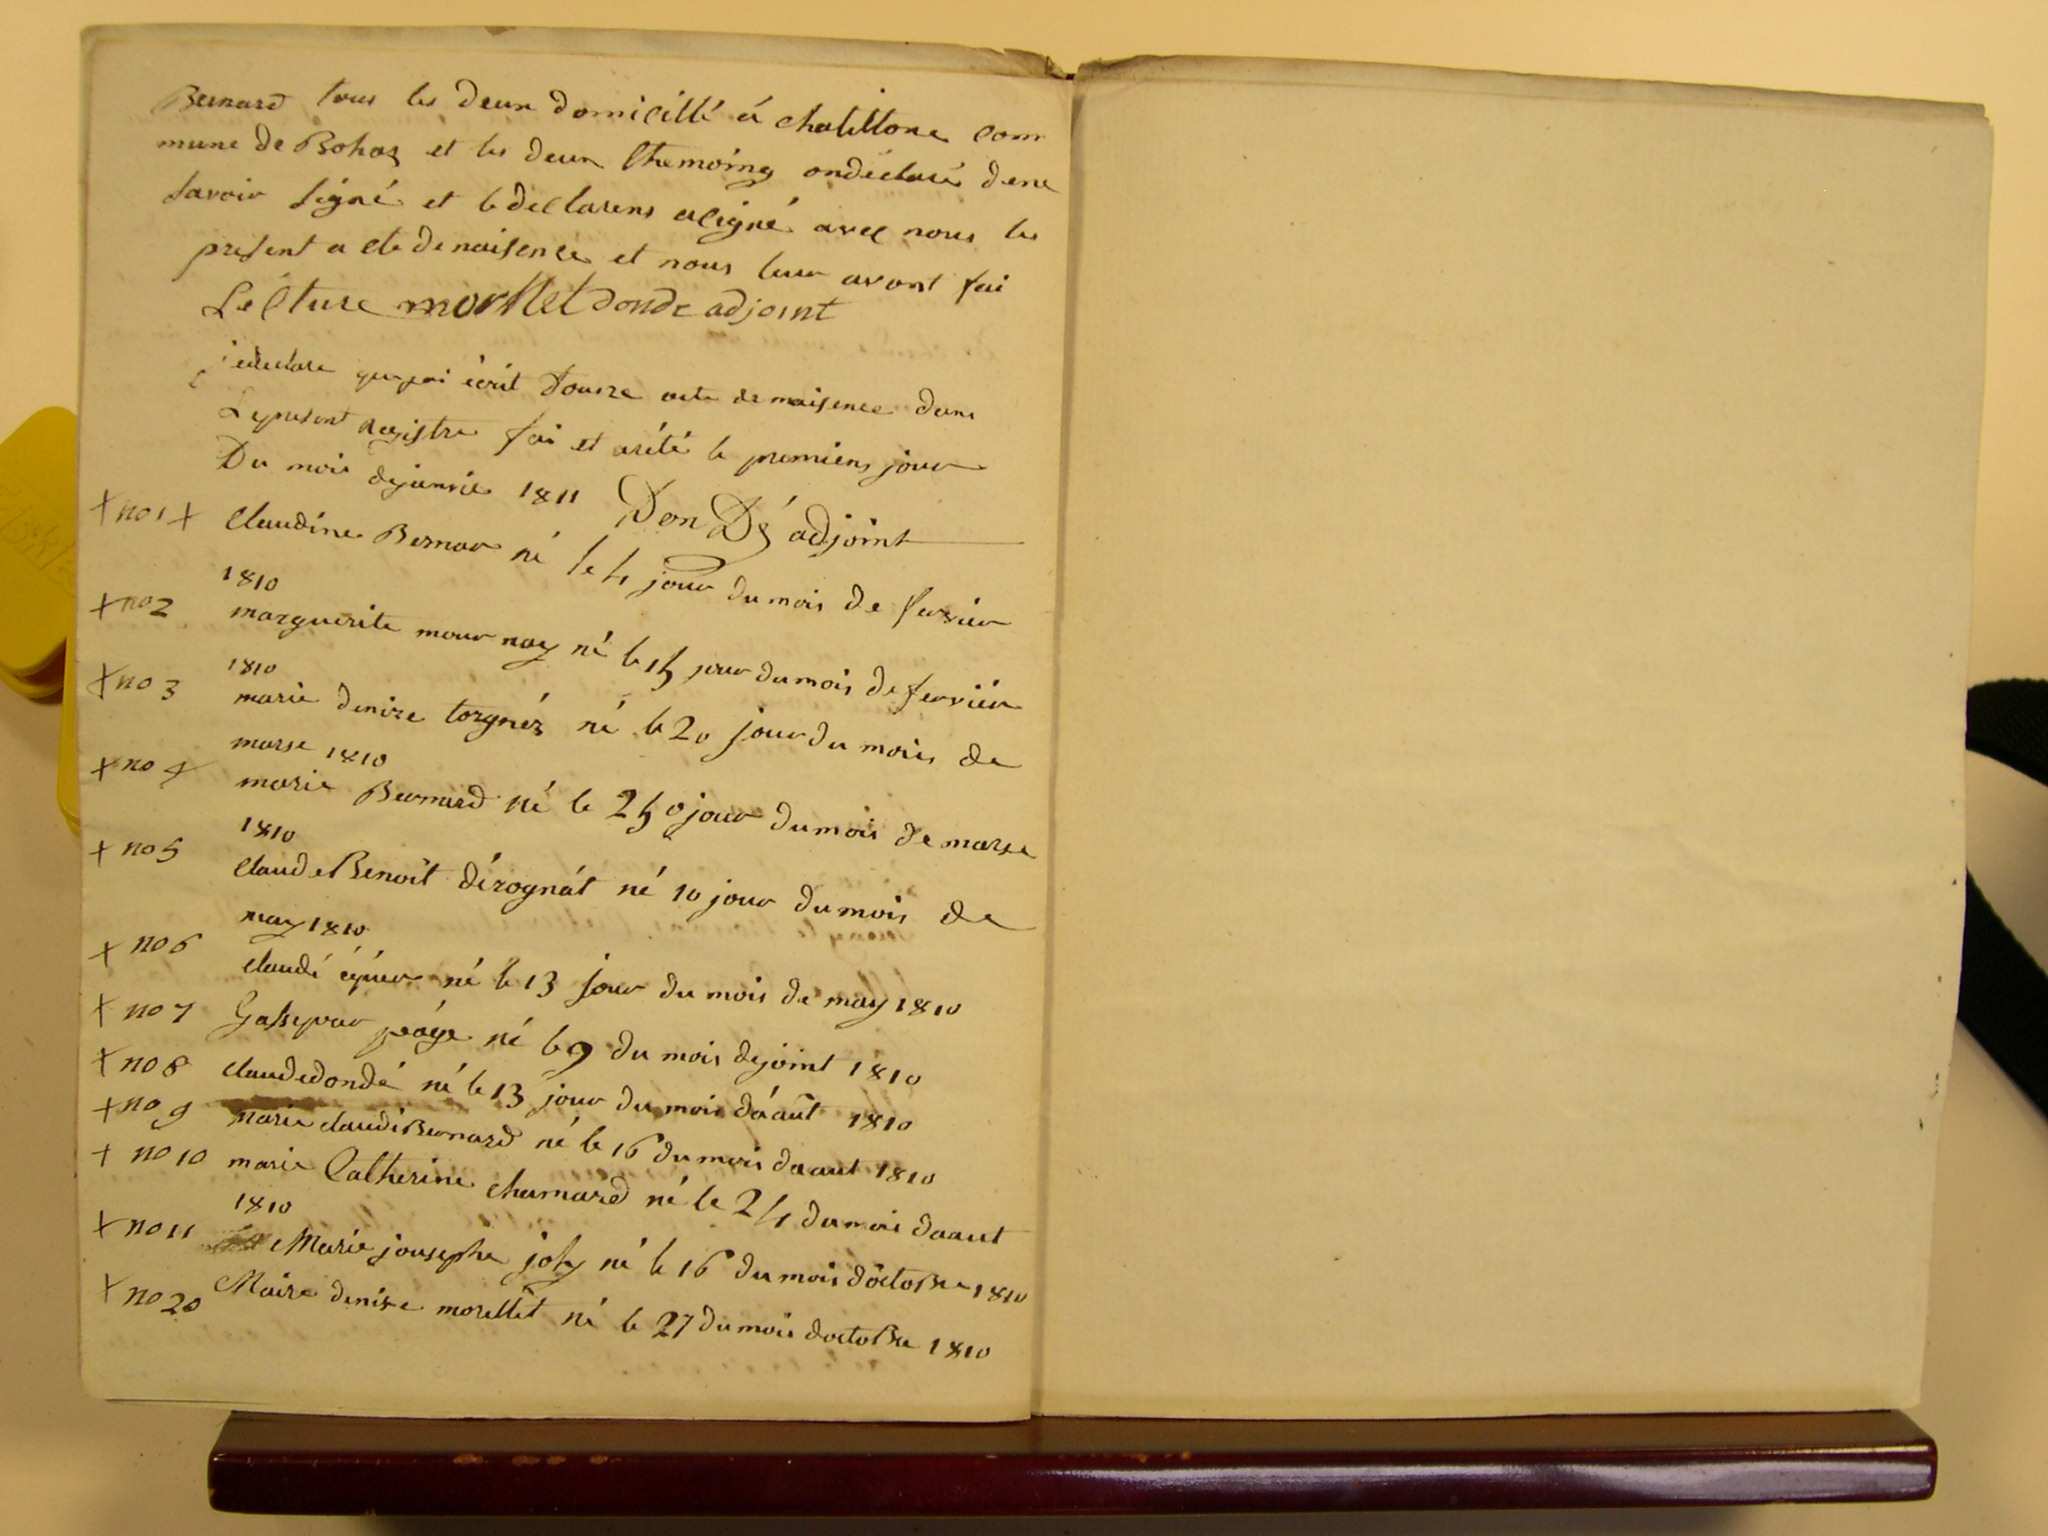 Bernard tous les deux domicillé á chatillone com
mune de Bohas et les deux themoing ondéclaré dene
savoir signé et le declarens asigné avec nous les
present acte de naisence et nous leur avont fai
Lécture morellet donde adjoint
jedeclare que jai écrit douze acte de naisence dans
Le present registre fai et arété le premiers jour
Du mois dejanvié 1811 Don Dé adjoint
+ no 1 + Claudine Bernar né le 4 jour du mois de fevrier
1810
+ no 2 marguerite mournay né le 15 jour du mois de fevrier
1810
+ no 3 marie denize torgnés né le 20 jour du mois de
marse 1810
+ no 4 marie Bernard né le 25 jour du mois de marse
1810
+ no 5 claude Benoit dérognát né 10 jour du mois de
may 1810
+ no 6 claudé né le 13 jour du mois de may 1810
+ no 7 Gaspar né le 9 du mois dejoint 1810
+ no 8 claude dondé né le 13 jour du mois dáaût 1810
+ no 9 marie claudiBernard né le 16 du mois daaut 1810
+ no 10 marie Catherine chamard né le 24 du mois daaut
1810
+ no 11 Marie jousephe joly né le 16 du mois doctobre 1810
+ no 20 Maire denise morellet né le 27 du mois doctobre 1810